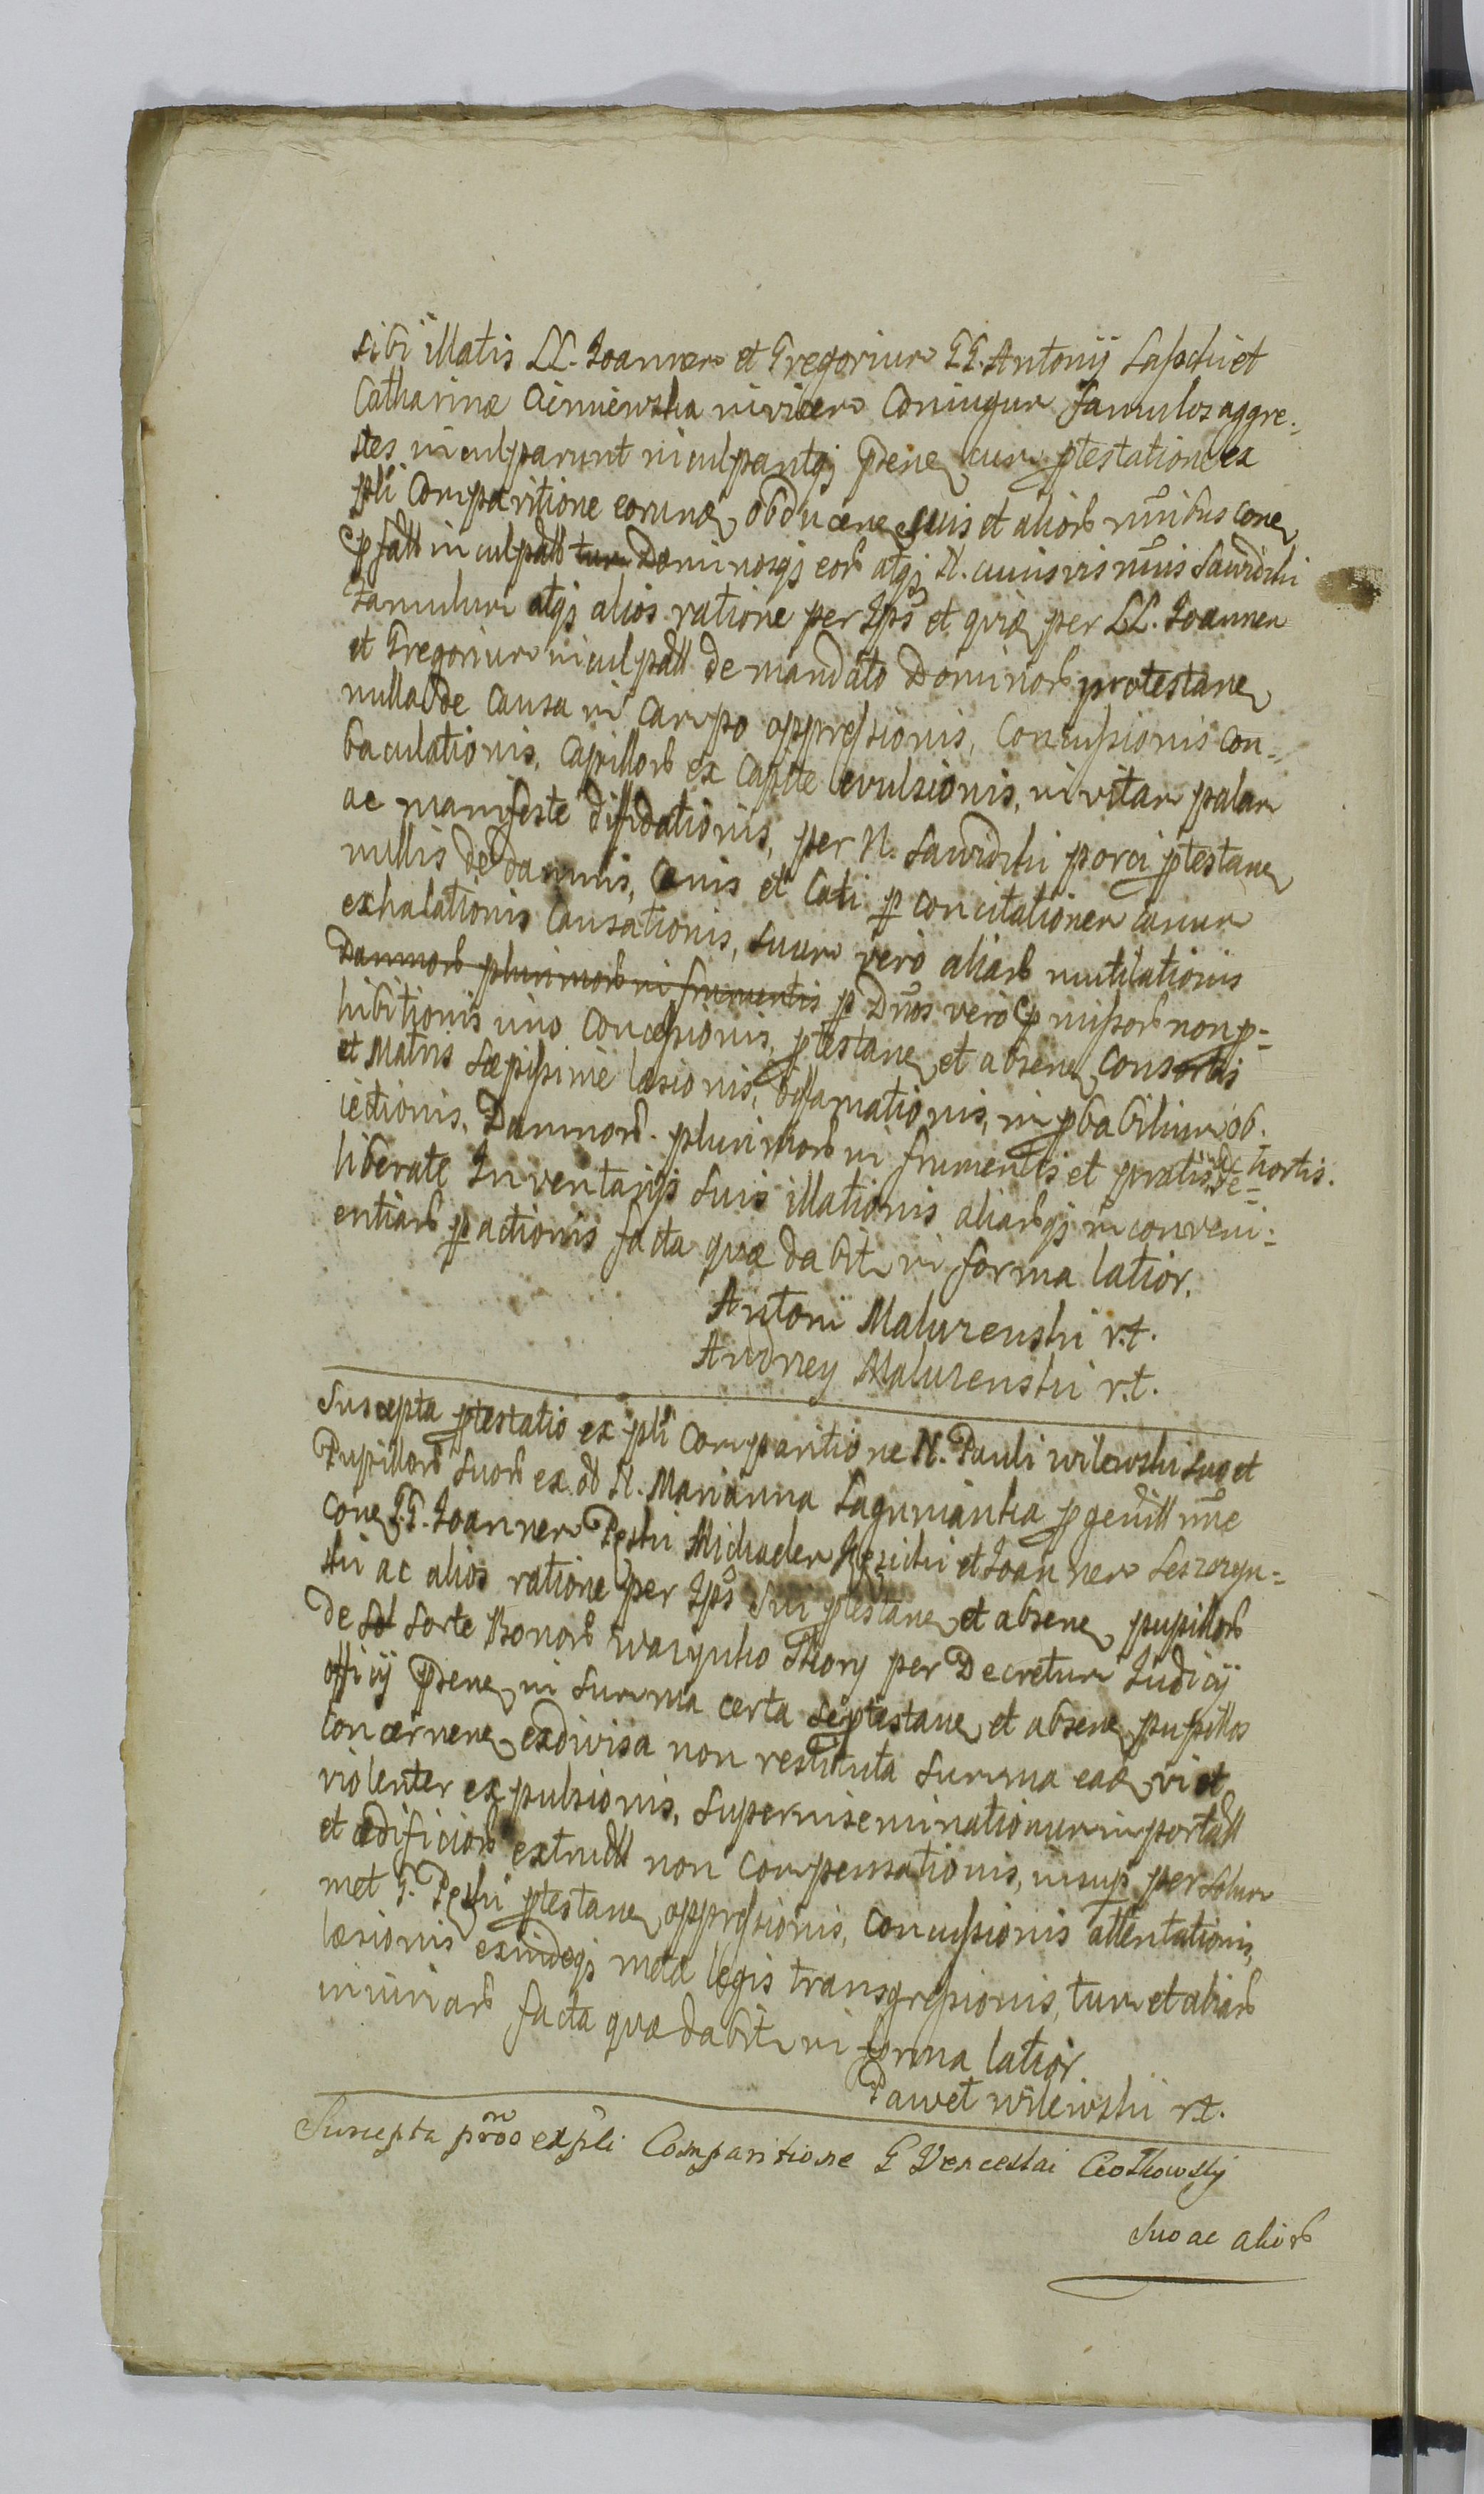 sibi illatis LL. Joannem et Gregorium GG. Antonij Laschi et
Catharinæ Ciemiewska invicem Coniugum famulos aggre-
stes inculparunt inculpantqj pene cum ptestatione ex
pli Comparitione eorund obducen suis et aliorb nnibus Cone
pfatt inculpatt tum Dominosqj eorb atqj N. cuiusvis nnis Sawidzki
famulum atqj alios ratione per Ips et quia per LL. Joannem
et Gregorium inculpatt de mandato Dominorb protestane
nulla de Causa in Campo oppressionis, Concussionis Con-
baculationis, Capillorb ex Capite evulsionis, in vitam palam
ac manifeste diffidationis, per N. Sawidzki porci ptestane
nullis de damnis, Canis et Cati p concitationem canum
exhalationis Causationis, suum vero aliarb mutilationis
Damnorb plurimorb in frumentis p Dnos vero pmissorb non p-
hibitionis imo Concessionis, ptestane et absene Consortis
et Matris sæpissime læsionis, diffamationis, inpbabilium ob-
iectionis, Damnorb plurimorb in frumentis et pratis et hortis de-
liberate Inventarijs suis illationis aliarbqj inconveni-
entiarb pactionis facta quæ dabit in forma latior.
Antoni Maluzenski r.t.
Andrzey Maluzenski r.t.
Suscepta ptestatio ex pli Comparitione N. Pauli Wilewski suo et
Pupillorb suorb ex od N. Marianna Lagunianka pgenitt nne
Cone GG. Joannem Peski Michaelem et Joannem
ski ac alios ratione per Ips sui ptestane et absene pupillorb
de sol sorte Bonorb Wazynko Skory per Decretum Judicij
officij pene in summa certa se ptestane et absene pupillos
Concernene exdivisa non restituta summa ead vi et
violenter expulsionis, superinseminationum importatt
et ædificiorb extructt non Compensationis, insup per solum
met G. Peski ptestane oppressionis, Concussionis attentationis,
læsionis exindeqj metæ legis transgressionis, tum et aliarb
iniuriarb facta quæ dabit in forma latior
Paweł Wilewski r.t.
Suscepta proo ex pli Comparitione G Venceslai Ciotkowsky
Suo ac aliorb